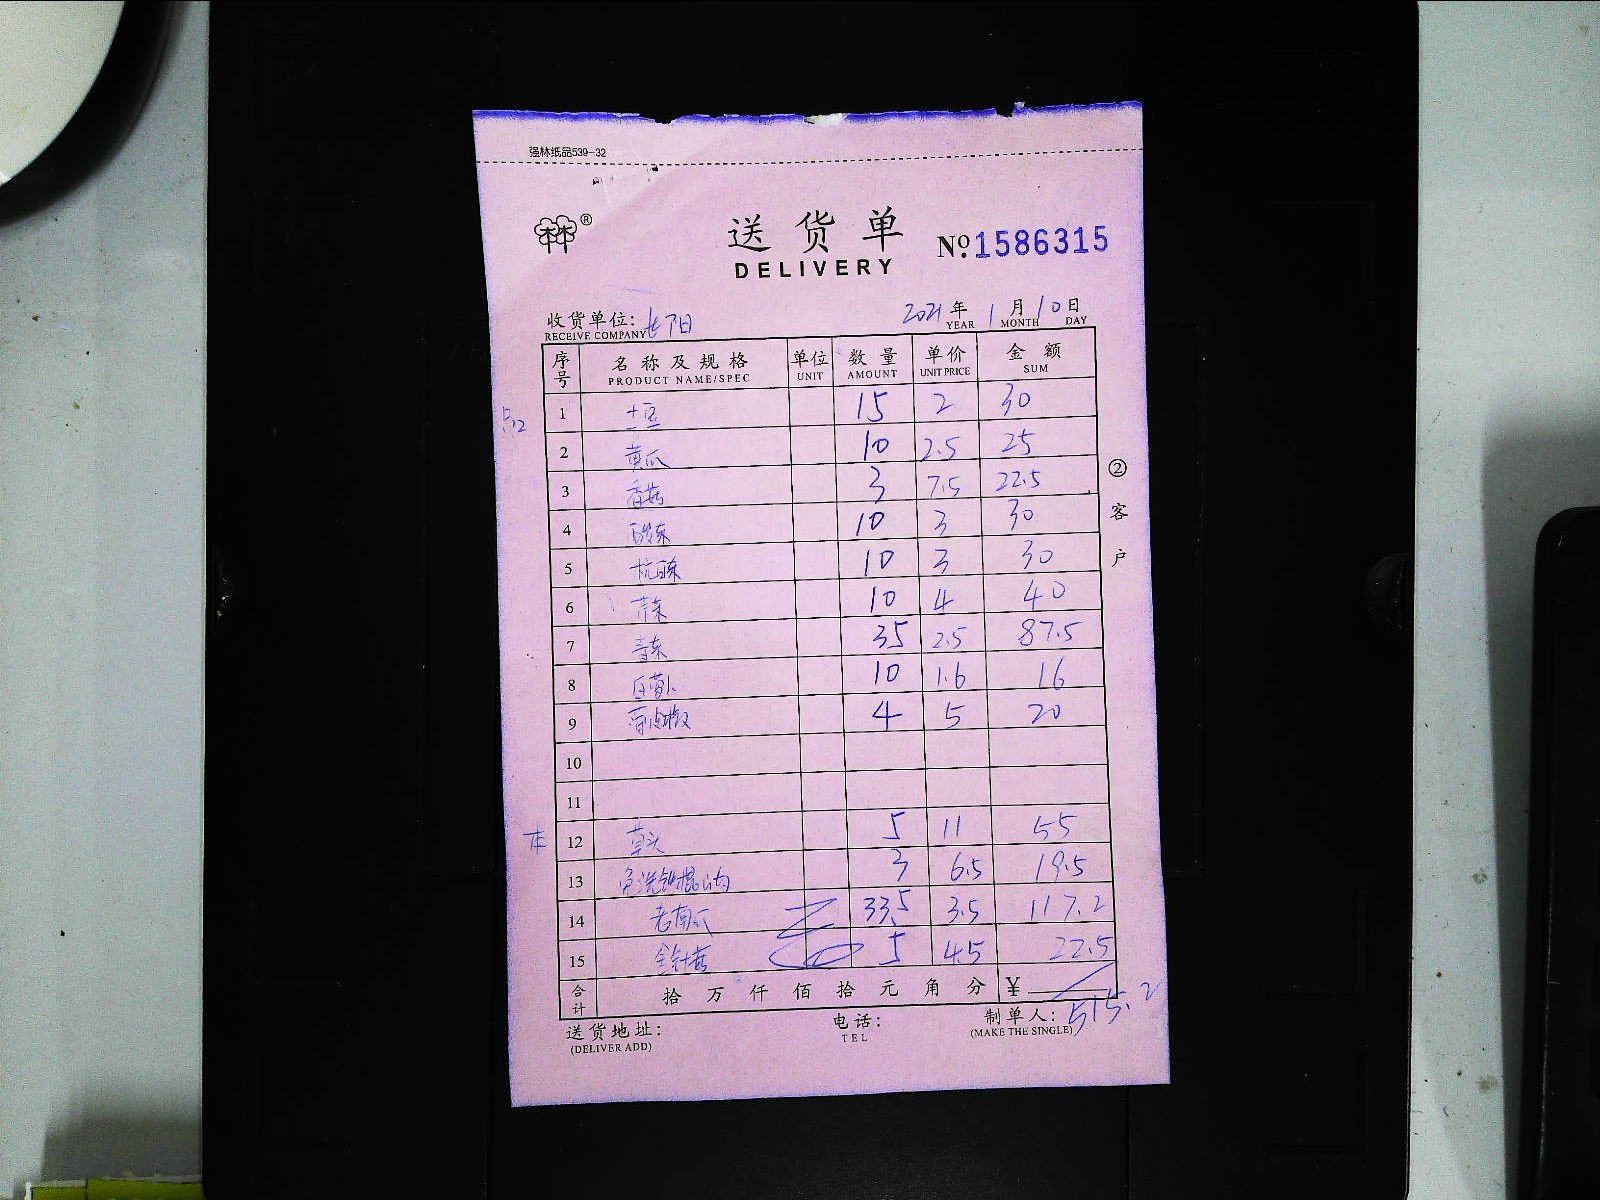 强林纸品539-32
送货单 №1586315
DELIVERY
收货单位: 2021年1月10日
RECEIVE COMPANY YEAR MONTH DAY
序号 名称及规格 单位 数量 单价 金额
PRODUCT NAME/SPEC UNIT AMOUNT UNIT PRICE SUM
1 土豆 15 2 30
2 黄瓜 10 2.5 25
3 香菇 3 7.5 22.5
4 10 3 30
5 10 3 30
6 10 4 40
7 35 2.5 87.5
8 白萝卜 10 1.6 16
9 4 5 20
10
11
12 草头 5 11 55
13 3 6.5 19.5
14 老南瓜 33.5 3.5 117.2
15 金针菇 5 4.5 22.5
合计 拾万仟佰拾元角分 ¥ 515.2
送货地址: 电话: 制单人:
(DELIVER ADD) TEL (MAKE THE SINGLE)
②客户